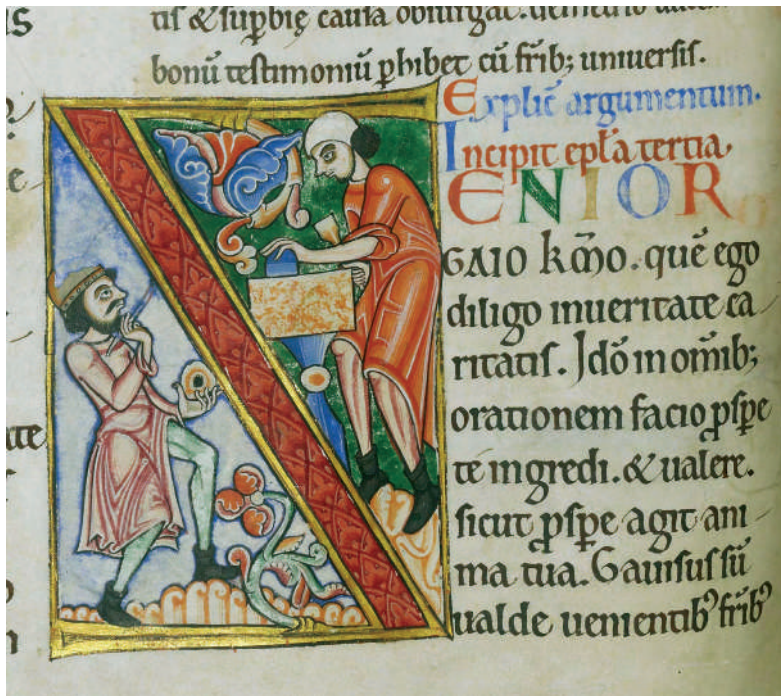 tis & suꝑbię causa obiurgat. demetrio autem
bonũ testimoniũ ꝑhibet cũ frĩb; uniuersis.
Explic̃ argumentum.
Incipit epl̃a tertia
SENIOR
GAIO km̃o. quẽ ego
diligo inueritate ca
ritatis. Idõ in om̃ib;
orationem facio ꝓspe
te ingredi. & ualere.
sicut ꝓspe agit ani
ma tua. Gauisus sũ
ualde uenientibꝰ frĩbꝰ